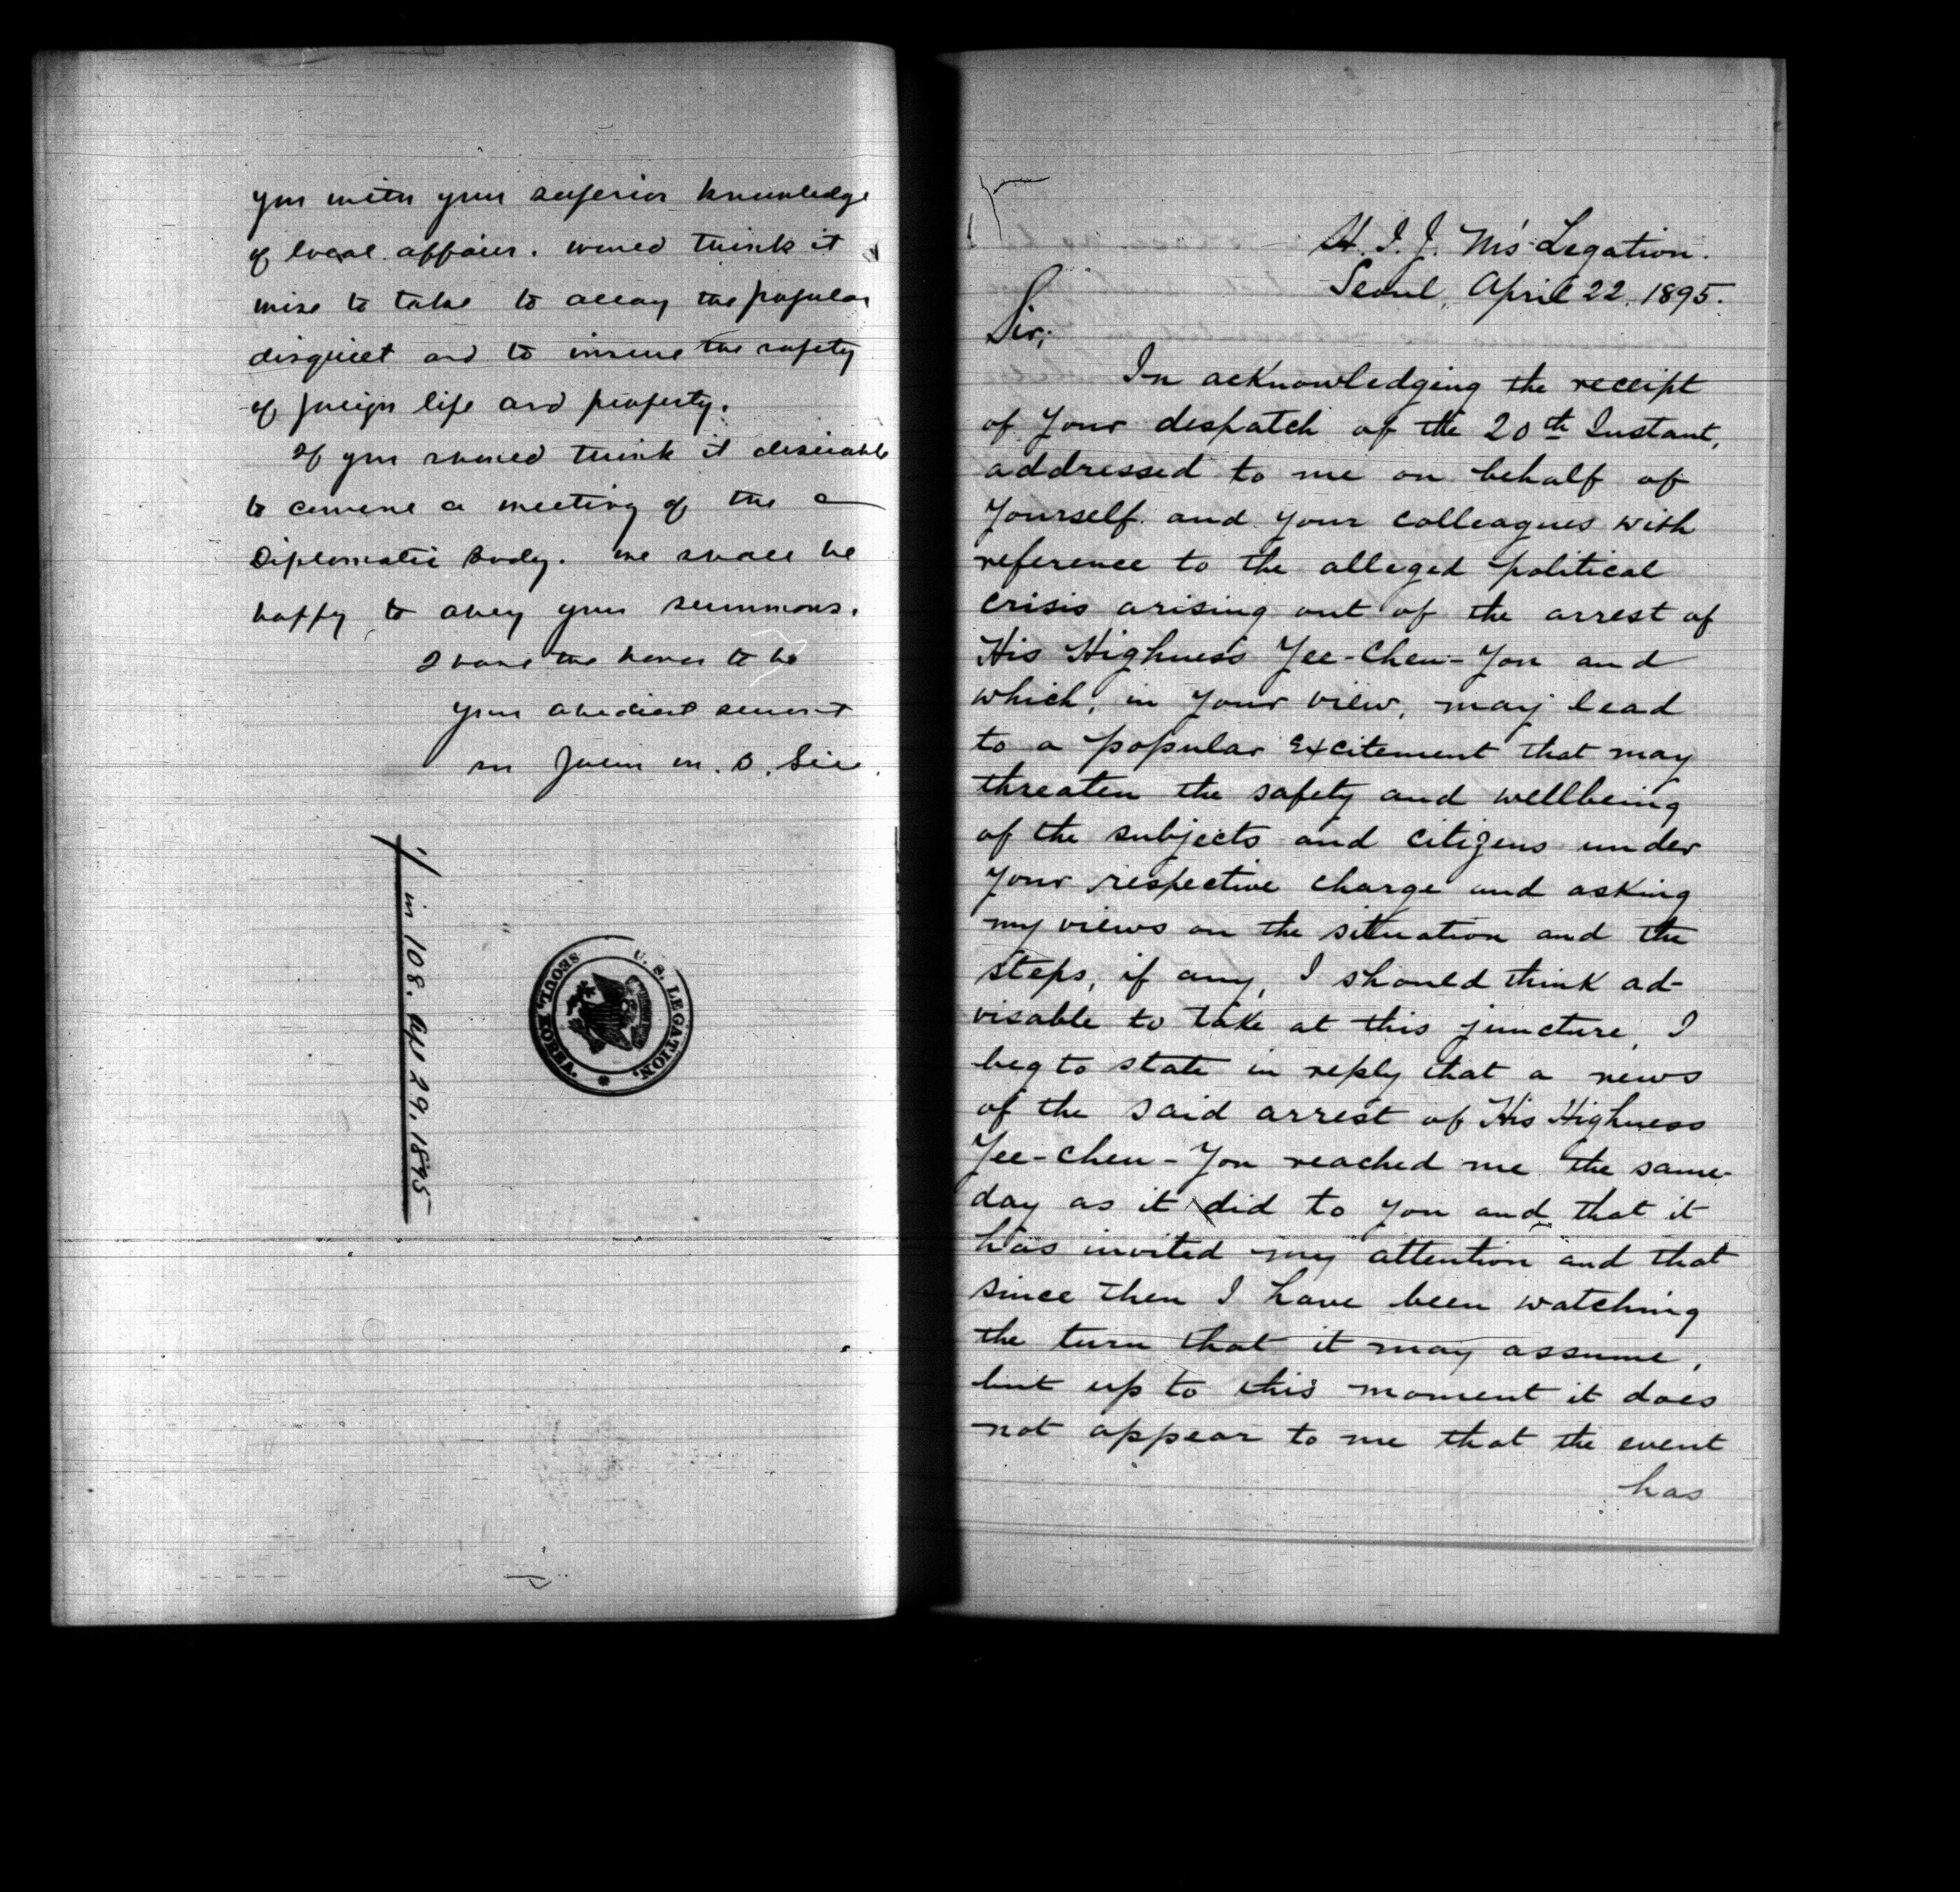 you with your superior knowledge
of local affairs. would think it
wise to take to allay the popular
disquiet and to insure the safety
of foreign life and property.
If you should think it desirable
to convene a meeting of the
Diplomatic Body. we shall be
happy to obey your summons.
I have the honor to be
your obedient servant
John M. B. Sill
1/ in 108. Ap 29. 1895
U. S. LEGATION,
SEOUL, KOREA.
H. I. J. M's Legation.
Seoul, April 22, 1895.
Sir;
In acknowledging the receipt
of your despatch of the 20th Instant,
addressed to me on behalf of
yourself and your colleagues with
reference to the alleged political
crisis arising out of the arrest of
His Highness Yee-Chen-Yon and
which, in your view, may lead
to a popular excitement that may
threaten the safety and wellbeing
of the subjects and citizens under
your respective charge and asking
my views on the situation and the
steps, if any, I should think ad-
visable to take at this juncture, I
beg to state in reply that a news
of the said arrest of His Highness
Yee-chen-Yon reached me the same
day as it did to you and that it
has invited my attention and that
since then I have been watching
the turn that it may assume,
but up to this moment it does
not appear to me that the event
has